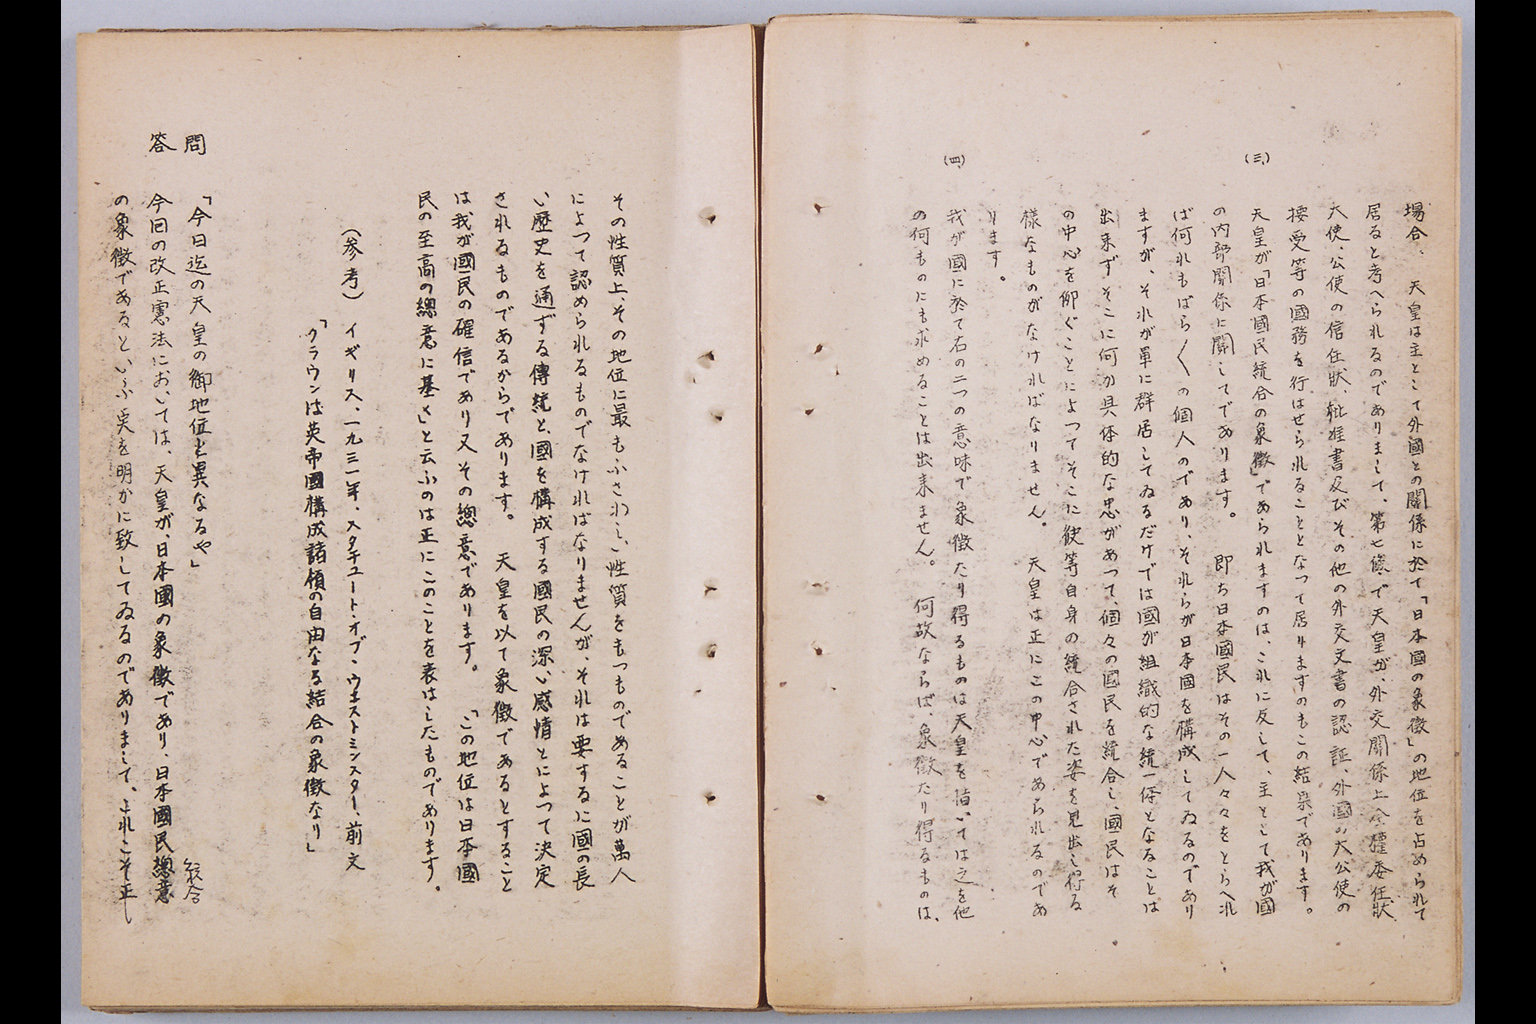 場合、天皇は主として外國との關係に於て「日本國の象徴」の地位を占められて
居ると考へられるのでありまして、第七條で天皇が、外交關係上全權委任狀、
大使、公使の信任狀、批准書及びその他の外交文書の認証、外國の大公使の
接受等の國務を行はせられることとなつて居りますのもこの結果であります。
(三) 天皇が「日本國民統合の象徴」であられますのは、これに反して、主として我が國
の内部關係に關してであります。 即ち日本國民はその一人々々をとらへれ
ば何れもばら〳〵の個人のであり、それらが日本國を構成してゐるのであり
ますが、それが單に群居してゐるだけでは國が組織的な統一体となることは
出来ずそこに何か具体的な忠があつて、個々の國民を統合し、國民はそ
の中心を仰ぐことによつてそこに彼等自身の統合された姿を見出し得る
樣なものがなければなりません。 天皇は正にこの中心であられるのであ
ります。
(四) 我が國に於て右の二つの意味で象徴たり得るものは天皇を措いては之を他
の何ものにも求めることは出来ません。 何故ならば、象徴たり得るものは、
その性質上、その地位に最もふさわしい性質をもつものであることが萬人
によつて認められるものでなければなりませんが、それは要するに國の長
い歷史を通ずる傳統と、國を構成する國民の深い感情とによつて決定
されるものであるからであります。 天皇を以て象徴であるとすること
は我が國民の確信であり又その總意であります。 「この地位は日本國
民の至高の總意に基く」と云ふのは正にこのことを表はしたものであります。
(参考) イギリス、一九三一年、スタチュート・オブ・ウエストミンスター、前文
「クラウンは英帝國構成諸領の自由なる結合の象徴なり」
問 「今日迄の天皇の御地位と異なるや」
答 今回の改正憲法においては、天皇が、日本國の象徴であり、日本國民總意
統合
の象徴であるといふ点を明かに致してゐるのでありまして、これこそ正し